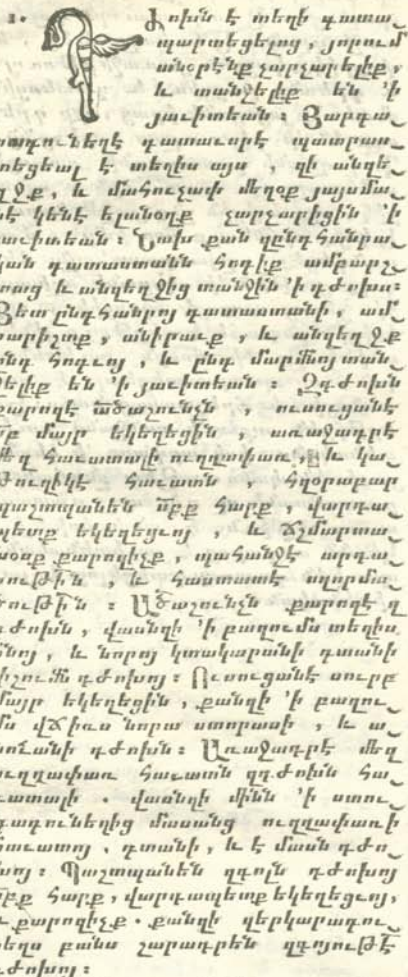 1. Դժոխն է տեղի դատա֊
պարտեցելոց, յորում
անօրէնք չարչարելիք,
և տանջելիք են 'ի
յաւիտեան : Յարդա֊
րադունեղէ դատաւորէ պատրաս
տեցեալ է տեղիս այս , զի անզե֊
ղջք, և մահուչափ մեղօք յայսմա֊
նէ կենէ ելանօղք չարչարիցին 'ի
յաւիտեան : Նախ քան զընդհանրա֊
կան դատաստանն հոգիք ամբարշ֊
տաց և անզեղջից տանջին 'ի դժոխս:
Յետ ընդհանրոյ դատաստանի , ամ֊
պարիշտք , անիրաւք , և անզեղջք
ընդ հոգւոյ , և ընդ մարմնոյ տան֊
ջելիք են 'ի յաւիտեան : Զդժոխն
քարոզէ ածաշունչն , ուսուցանէ
սբ մայր եկեղեցին , առաջադրէ
մեզ հաւատալի ուղղափառ , և կա֊
թուղիկէ հաւատն , հզօրաբար
պաշտպանեն սբք հարք , վարդա֊
պետք եկեղեցւոյ , և ճշմարտա֊
սօսք քարոզիչք , պահանջէ արդա֊
րութիւն , և հաստատէ ողորմա֊
ծութիւն : Ածաշունչն քարոզէ զ
դժոխն , վասնզի 'ի բազումս տեղիս
հնոյ , և նորոյ կտակարանի գտանի
յիշումն դժոխոյ : Ուսուցանէ սուրբ
մայր եկեղեցին , քանզի 'ի բազու֊
մս վճիռս նորա ստորասի , և ա֊
ւանդի դժոխն : Առաջադրէ մեզ
ուղղափառ հաւատն զդժոխն հա֊
ւատալի . վասնզի մինն 'ի ստու֊
գադունեղից մասանց ուղղափառի
հաւատոյ , գտանի , և է մասն դժո֊
խոյ : Պաշտպանեն զգոլն դժոխոյ
սբք հարք , վարդապետք եկեղեցւոյ,
և քարոզիչք . քանզի զերկարադու֊
նեղս բանս շարադրեն զգոյութէ
դժոխոյ :